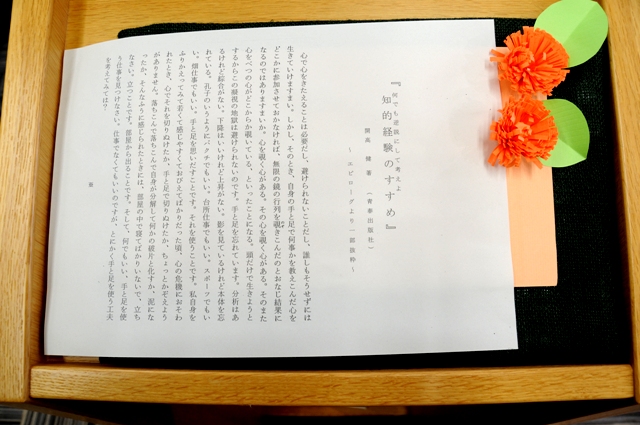 『何でも逆説にして考えよ
知的経験のすすめ』
開高　健　著　（青春出版社）
～　エピローグより一部抜粋　～
心で心をきたえることは必要だし、避けられないことだし、誰しもそうせずには
生きていけますまい。しかし、そのとき、自身の手と足で何事かを教えこんだ心を
どこかに参加させておかなければ、無限の鏡の行列を覗きこんだのとおなじ結果に
なるのではありますまいか。心を覗く心がある。その心を覗く心がある。そのまた
心をべつの心がどこからか覗いている、といったことになる。頭だけで生きようと
するからこの凝視の地獄は避けられないのです。手と足を忘れています。分析はあ
るけれど綜合がない。下降はいいけれど上昇がない。影を見ているけれど本体を忘
れている。孔子のいうようにバクチでもいい。台所仕事でもいい。スポーツでもい
い。畑仕事でもいい。手と足を思いだすことです。それを使うことです。私自身を
ふりかえってみて若くて感じやすくておびえてばかりだった頃、心の危機におそわ
れたとき、心でそれを切りぬけたか、手と足で切りぬけたか、ちょっとかぞえよう
がありません。落ちこんで落ちこんで自身が分解して何かの破片と化すか、泥にな
ったか、そんなふうに感じられたときには、部屋の中で寝てばかりいないで、立ち
なさい。立つことです。部屋から出ることです。そして、何でもいい、手と足を使
う仕事を見つけなさい。仕事でなくてもいいのですが、とにかく手と足を使う工夫
を考えてみては？